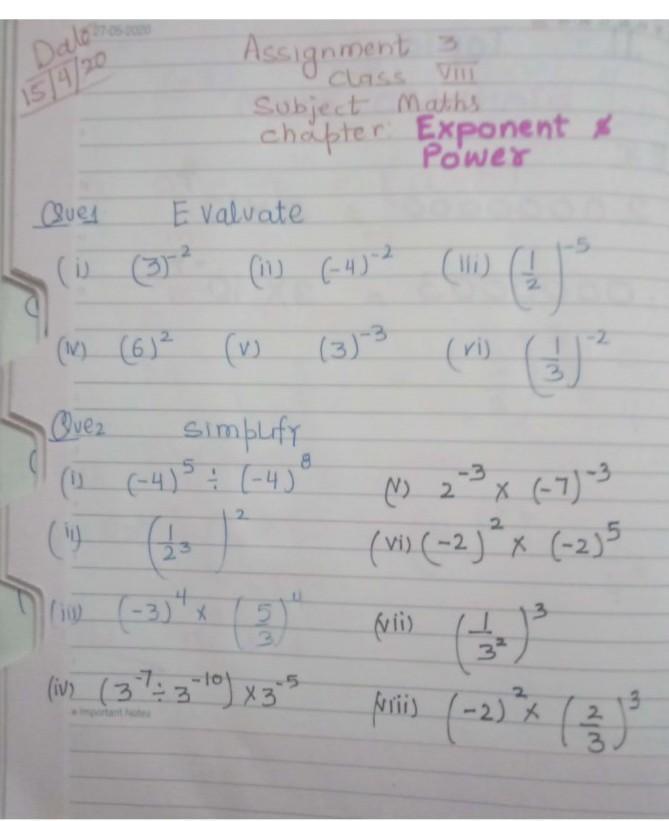 27-05-2020
Date
15/4/20
Assignment 3
Class VIII
Subject Maths
chapter: Exponent &
Power
Que1 Evalvate
(i) (3)^-2 (ii) (-4)^-2 (iii) (1/2)^-5
(iv) (6)^2 (v) (3)^-3 (vi) (1/3)^-2
Que2 simplify
(i) (-4)^5 ÷ (-4)^8 (v) 2^-3 × (-7)^-3
(ii) (1/2^3)^2 (vi) (-2)^2 × (-2)^5
(iii) (-3)^4 × (5/3)^4 (vii) (1/3^2)^3
(iv) (3^-7 ÷ 3^-10) × 3^-5 (viii) (-2)^2 × (2/3)^3
Important Notes